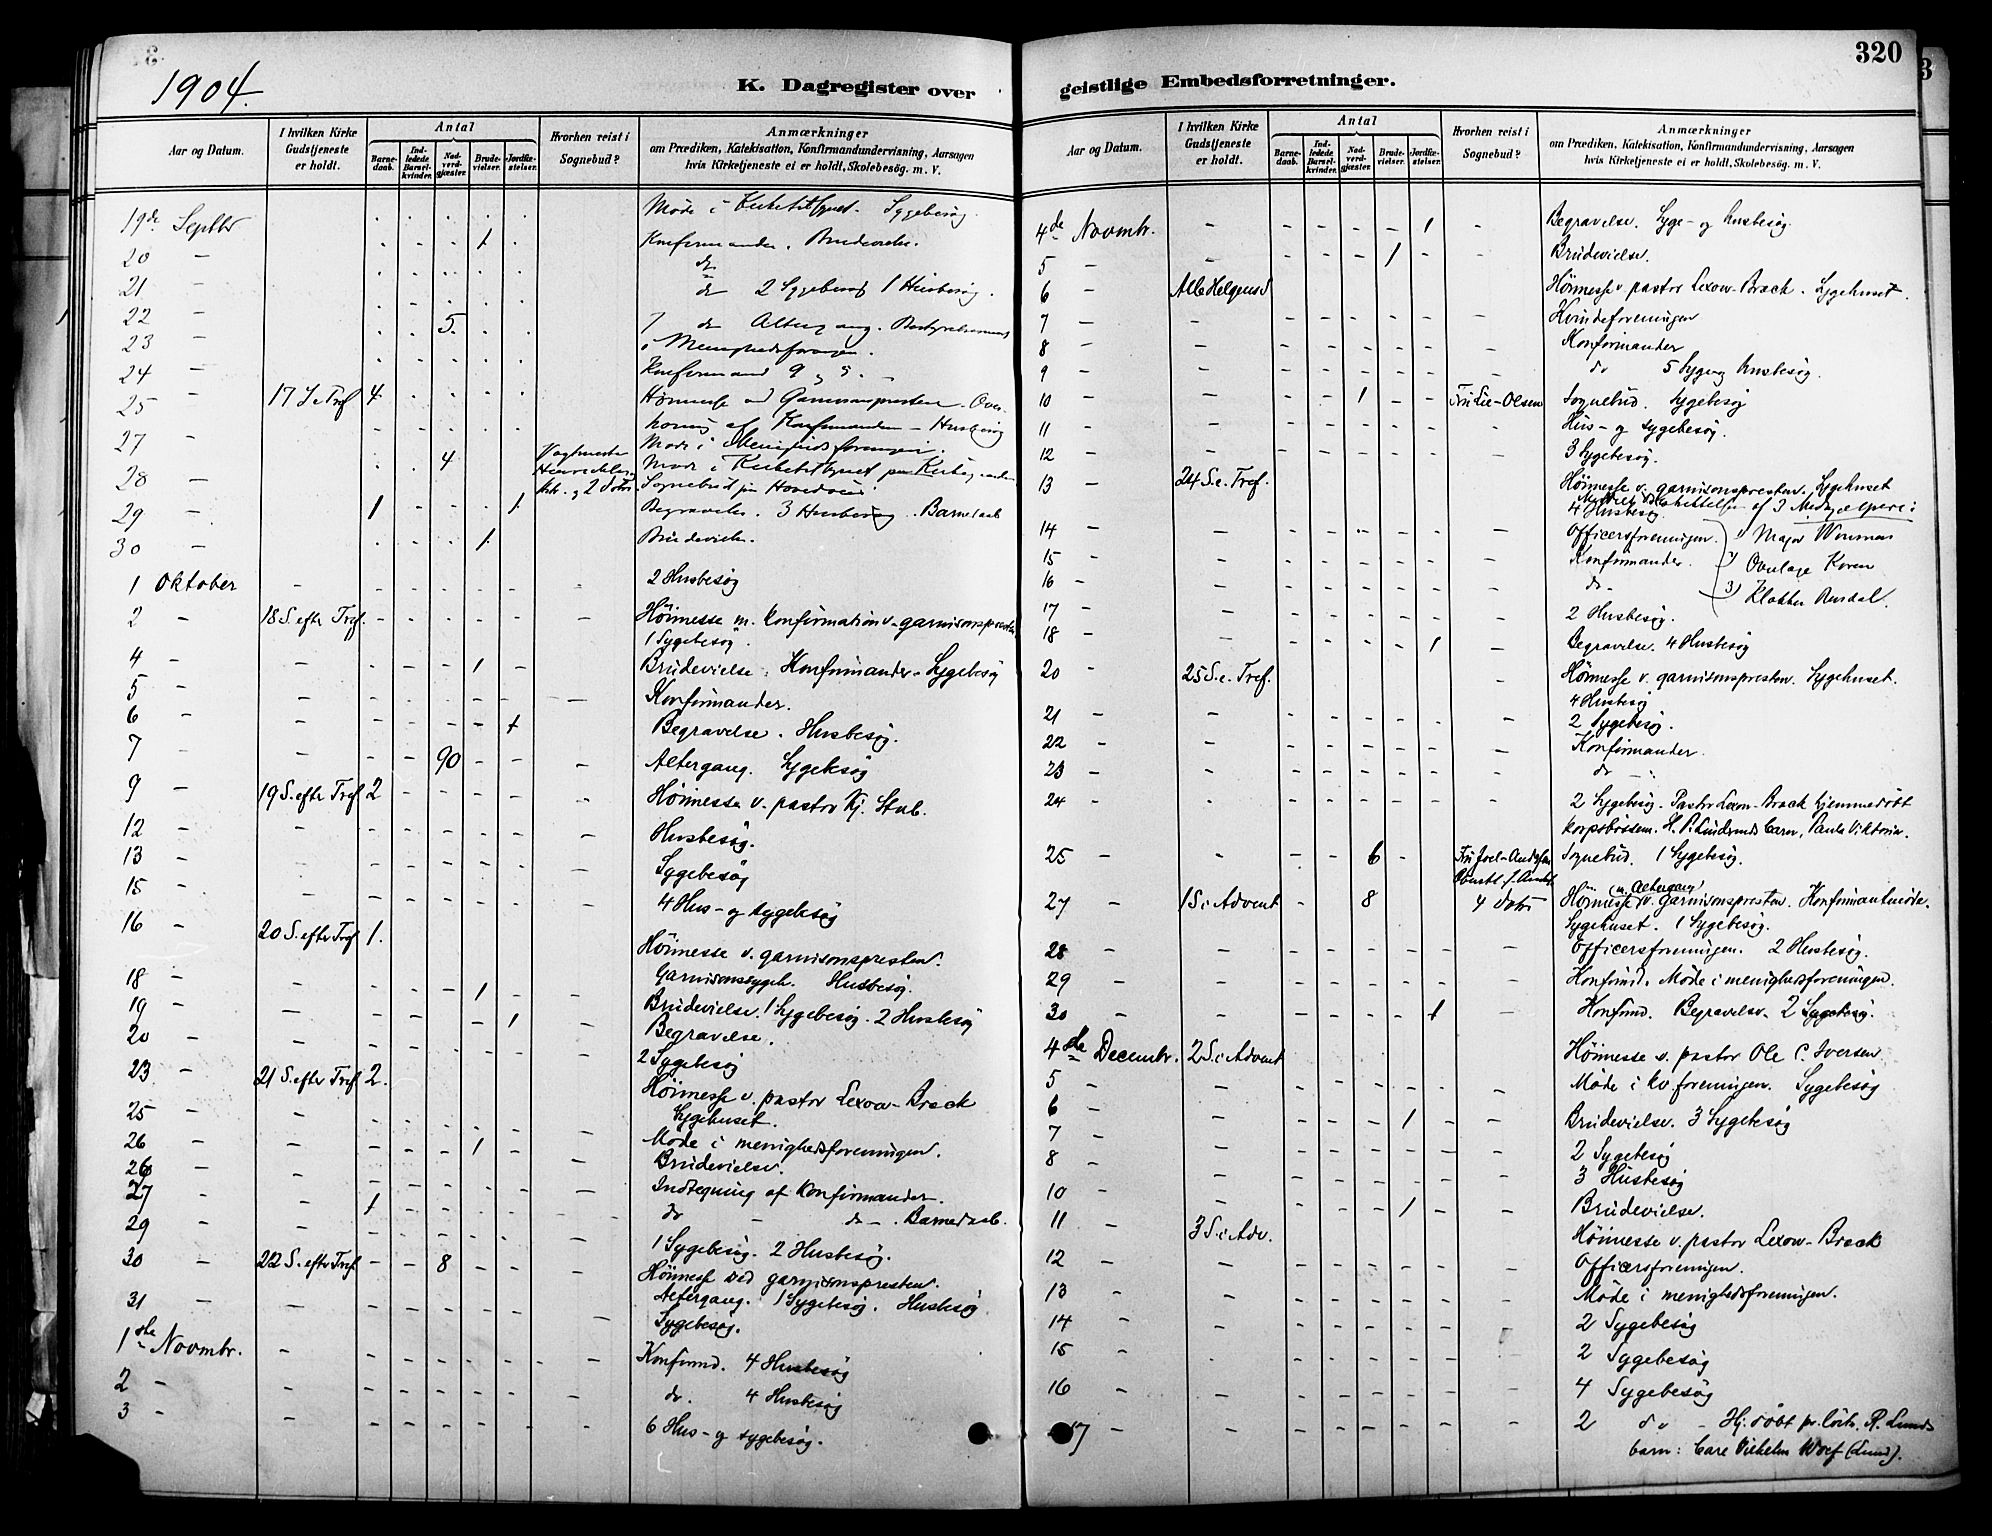 1904.
K. Dagregister over
Aar og Datum.
I hvilken Kirke Gudstjeneste er holdt.
Antal
Barne-daab.
Ind-ledede Barsel-kvinder.
Nad-verd-gjæster.
Brude-vielser.
Jordfæ-stelser.
Hvorhen reist i Sognebud?
Anmærkninger
om Prædiken, Katekisation, Konfirmandundervisning, Aarsagen
hvis Kirketjeneste ei er holdt, Skolebesög. m. V.
19de Septbr Møde i Sygebesøg.
20 - 1 Konfirmander. Brudevielse.
21 - do
22 - do 2 Sygebesøg 1 Husbesøg.
23 - 5. do Altergang.
i Menighedsforeningen.
24 - Konfirmand
25 - 17 S e Tref 4 Høimesse ved Garnisonspresten. Over-
høring af Konfirmanden - Husbesøg
27 - Møde i Menighedsforeningen.
28 - 4 Møde i
Sognebud paa
29 - 1 1 Begravelse. 3 Husbesøg. Barnedaab
30 - 1. Brudevielse.
1 Oktober - 2 Husbesøg
2 - 18 S. efter Tref. - Høimesse m. Konfirmation v. garnisonspresten
1 Sygebesøg.
4 - 1 - Brudevielse. Konfirmander. Sygebesøg
5 - Konfirmander.
6 - 1 Begravelse. Husbesøg.
7 - 90 - Altergang. Sygebesøg
9 - 19 S. efter Tref 2 Høimesse v. pastor Kj. Stub.
12 - Husbesøg.
13 - Sygebesøg
15 - 4 Hus- og sygebesøg
16 - 20 S. efter Tref 1. Høimesse v. garnisonspresten.
Garnisonssygeh. Husbesøg.
18 - 1 Brudevielse. 1 Sygebesøg. 2 Husbesøg
19 - 1 Begravelse.
20 - 2 Sygebesøg
23 - 21 S. efter Tref 2. Høimesse v. pastor Lexow-Brack
Sygehuset.
25 - Møde i menighedsforeningen.
26 - 1 Brudevielse.
26 - Indtegning af Konfirmander.
27 - 1 do - do -. Barnedaab.
29 - 1 Sygebesøg. 2 Husbesøg.
30 - 22 S. efter Tref - 8 Høimesse ved garnisonspresten.
Altergang. 1 Sygebesøg. Husbesøg
31 - Sygebesøg.
1ste Novmbr. - Konfirmd. 4 Husbesøg
2 - do. 4 Husbesøg
3 - 6 Hus- og sygebesøg.
320
geistlige Embedsforretninger.
Aar og Datum.
I hvilken Kirke Gudstjeneste er holdt.
Antal
Barne-daab.
Ind-ledede Barsel-kvinder.
Nad-verd-gjæster.
Brude-vielser.
Jordfæ-stelser.
Hvorhen reist i Sognebud?
Anmærkninger
om Prædiken, Katekisation, Konfirmandundervisning, Aarsagen
hvis Kirketjeneste ei er holdt, Skolebesög. m. V.
4de Novmbr. - 1 - Begravelse. Syge- og husbesøg.
5 - 1 - Brudevielse.
6 - Alle Helgensd Høimesse v. pastor Lexow-Brack. Sygehuset.
7 - Kvindeforeningen
8 - Konfirmander
9 - do 5 Syge og husbesøg.
10 - 1 - Fru Lie-Olsen Sognebud. Sygebesøg
11 - Hus- og sygebesøg.
12 - 3 Sygebesøg.
13 - 24 S. e. Tref. Høimesse v. garnisonspresten. Sygehuset
4 Husbesøg af 3 Medhjælpere:
14 - Officersforeningen. 1) Major
15 - Konfirmander. 2) Koren
16 - do 3) Klokker
17 - 2 Husbesøg.
18 - 1 Begravelse. 4 Husbesøg
20 - 25 S. e. Tref. Høimesse v. garnisonspresten. Sygehuset.
4 Husbesøg
21 - 2 Sygebesøg.
22 - Konfirmander.
23 - do -
24 - 2 Sygebesøg. Pastor Lexow-Brack hjemmedøbt
barn, Paula Viktoria.
25 - 6 - Sognebud. 1 Sygebesøg.
27 - 1 S. i Advent - 8 4 Høimesse (m. Altergang) v. garnisonspresten. Konfirmantmøde.
Sygehuset. 1 Sygebesøg.
28 - Officersforeningen. 2 Husbesøg.
29 - Konfirmd. Møde i menighedsforeningen.
30 - 1 Konfirmd. Begravelse. 2 Sygebesøg.
4de Decembr. 2 S. i Advent Høimesse v. pastor Ole C. Iversen
5 - Møde i kv. foreningen. Sygebesøg
6 - 1 Brudevielse. 3 Sygebesøg
7 - 2 Sygebesøg
8 - 3 Husbesøg
10 - 1 Brudevielse.
11 - 3 S. i Adv. Høimesse v. pastor Lexow-Brack
12 - Officersforeningen.
13 - Møde i menighedsforeningen.
14 - 2 Sygebesøg
15 - 2 Sygebesøg
16 - 4 Sygebesøg
17 - 2 do - Hj. døbt R. Lunds
barn: Carl Vilhelm (Lund).